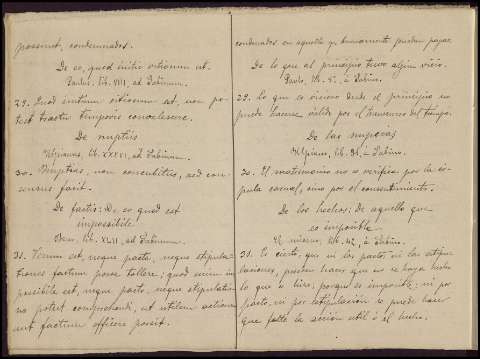 possunt, condemnados.
De eo, quod initio vitiosum est.
Paulus, lib. VIII, ad Sabinum.
29. Quod initium vitiosum est, non po-
test tractu temporis convalescere.
De nuptiis
Ulpianus, lib. XXXVI, ad Sabinum.
30. Nuptias, non concubitus, sed con-
sensus facit.
De factis: De eo quod est
impossibile
lib. XLII, ad Sabinum.
31. Verum est, neque pacto, neque stipula-
tiones factum posse tollere; quod enim im-
possibile est, neque pacto, neque stipulatio
no potest comprehendi, ut utilem actionem
aut factum efficere possit.
condenados en aquello que buenamente puedan pagar.
De lo que al principio tuvo algún vicio.
Paulo, lib. à Sabino.
29. Lo que es vicioso desde el principio no
puede hacerse válido por el transcurso del tiempo.
De las nupcias
Ulpiano, lib. à Sabino.
30. El matrimonio no se verifica por la có-
pula carnal, sino por el consentimiento.
De los hechos: De aquello que
es imposible.
El mismo, lib. 42, à Sabino.
31. Es cierto, que ni los pactos, ni las estipu-
laciones, pueden hacer que no se haya hecho
lo que se hizo; porque es imposible: ni por
pacto, ni por estipulación se puede hacer
que falte la acción util ó el hecho.